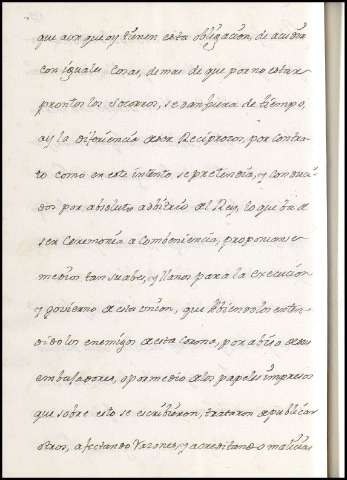 que aunque oy tienen esta obligacion de acudir
con iguales cosas, demas de que por no estar
prontos los socorros, se van fuera de tiempo,
ay la diferencia de ser Reciprocos, por contra-
to como en este intento se pretendia, y conduci-
dos por absoluto adbitrio del Rey, lo que de
ser Ceremonia a Combeniencia, proponian se
medios tan suabes, y llanos para la execucion
y govierno de esta union, que abiendolos enten-
dido los enemigos de esta Corona, por abiso de sus
embajadores, o por medio de los papeles impresos
que sobre esto se escribieron, trataron de publicar
otros, afectando Razones, y acreditando malicias